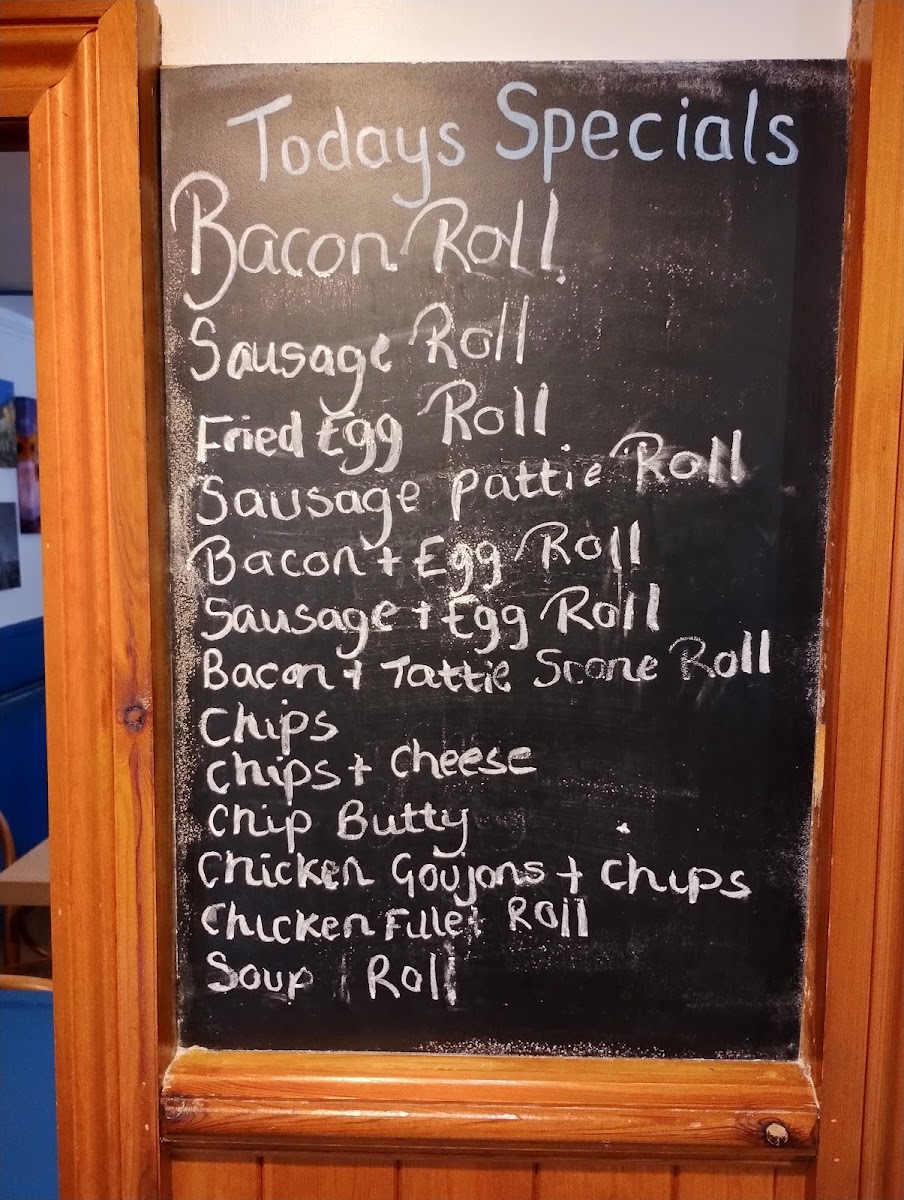 Todays Specials
Bacon Roll
Sausage Roll
Fried Egg Roll
Sausage pattie Roll
Bacon + Egg Roll
Sausage + Egg Roll
Bacon + Tattie Scone Roll
Chips
Chips + Cheese
Chip Butty
Chicken Goujons + Chips
Chicken Fillet Roll
Soup | Roll